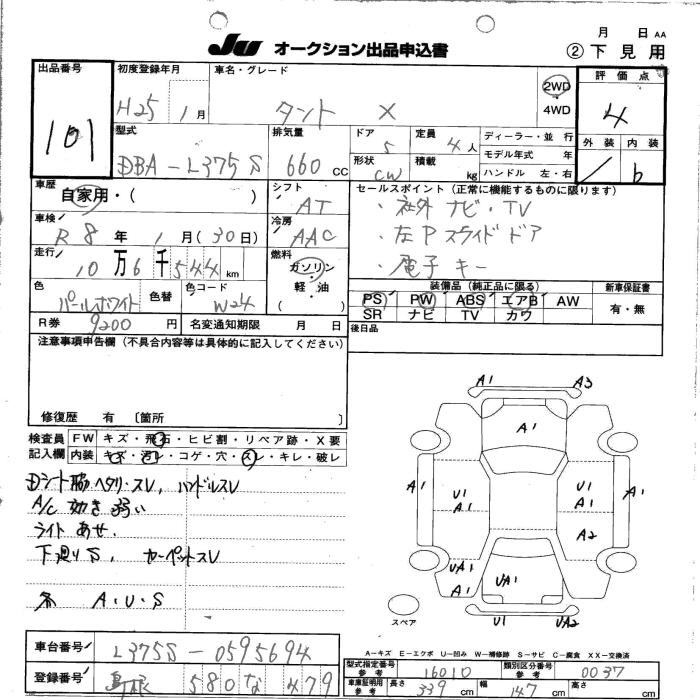 月 日 AA
JU オークション出品申込書
② 下見用
出品番号
101
初度登録年月
H25 1月
車名・グレード
タント X
2WD
4WD
評価点
4
外装 内装
/ b
型式
DBA-L375S
排気量
660 CC
ドア
5
形状
CW
定員
4人
積載
kg
ディーラー・並行
モデル年式 年
ハンドル 左・右
車歴
自家用・( )
シフト
AT
セールスポイント(正常に機能するものに限ります)
・社外 ナビ・TV
・左P スライド ドア
・電子キー
車検
R8年 1月(30日)
冷房
AAC
走行
10万6千544km
燃料
ガソリン
・
軽油
( )
色
パールホワイト
色替
色コード
W24
装備品(純正品に限る)
PS PW ABS エアB AW
SR ナビ TV カワ
新車保証書
有・無
R券 9200円
名変通知期限 月 日
後日品
注意事項申告欄(不具合内容等は具体的に記入してください)
修復歴 有 〔箇所 〕
検査員
記入欄
FW キズ・飛石・ヒビ割・リペア跡・X要
内装 キズ・汚レ・コゲ・穴・スレ・キレ・破レ
Dシート脇ヘタリ・スレ, ハンドルスレ
A/C 効き弱い
ライト あせ.
下廻りS, カーペットスレ
各 A・U・S
A1 A3
A1
A1 U1 A1 U1 A1 A1
A2
UA1 A1 UA1
U1 UA2
スペア
A-キズ E-エクボ U-凹み W-補修跡 S-サビ C-腐食 XX-交換済
車台番号
L375S-0595694
登録番号
島根 580 な 479
型式指定番号
参考
16010
類別区分番号
参考
0037
車庫証明用
参考
長さ 339 cm
幅 147 cm
高さ cm